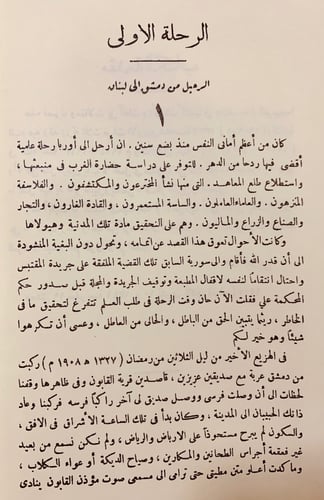 الرحلة الاولى
الرحيل من دمشق الى لبنان
١
كان من أعظم أماني النفس منذ بضع سنين . ان أرحل الى أوربا رحلة علمية
أقضي فيها ردحا من الدهر . للتوفر على دراسة حضارة الغرب في منبعثها ،
واستطلاع طلع المعاهد ـ التي منها نشأ المخترعون والمكتشفون . والفلاسفة
المنزهون . والعلماء العاملون . والساسة المستعمرون ، والقادة الغازون ، والتجار
والصناع والزراع والماليون . وهم على التحقيق مادة تلك المدنية وهيولاها
وكانت الأحوال تعوق هذا القصد عن اتمامه ، وتحول دون البغية المنشودة
الى ان قدر الله فأقام والي سورية السابق تلك القضية الملفقة على جريدة المقتبس
واحتال انتقامًا لنفسه لاقفال المطبعة وتوقيف الجريدة والمجلة قبل صدور حكم
المحكمة علي فقلت الآن حان وقت الرحلة في طلب العلم لتتفرغ لتحقيق ما في
الخاطر ، ريثما يتبين الحق من الباطل ، والحالي من العاطل ، وعسى أن تكرهوا
شيئًا وهو خير لكم
في الهزيع الأخير من ليل الثلاثين من رمضان ( ١٣٢٧ ه ١٩٠٨ م ) ركبت
من دمشق عربة مع صديقين عزيزين ، قاصدين قرية القابون وفي ظاهرها وقفنا
لحظات الى أن وصلت فرسي ووصل صديق لي آخر راكبًا فرسه فركبنا وعاد
ذانك الحبيبان الى المدينة ، وكان بدأ في تلك الساعة الاشراق في الافق ،
والسكون لم يبرح مستحوذًا على الارباض والرياض ، ولم نكن نسمع من بعيد
غير قعقعة أجراس الطحانين والمكارين ، وصياح الديكة أو عواء الكلاب ،
وما كدت أعلو متن مطيتي حتى ترامى الى مسمعي صوت مؤذن القابون ينادي